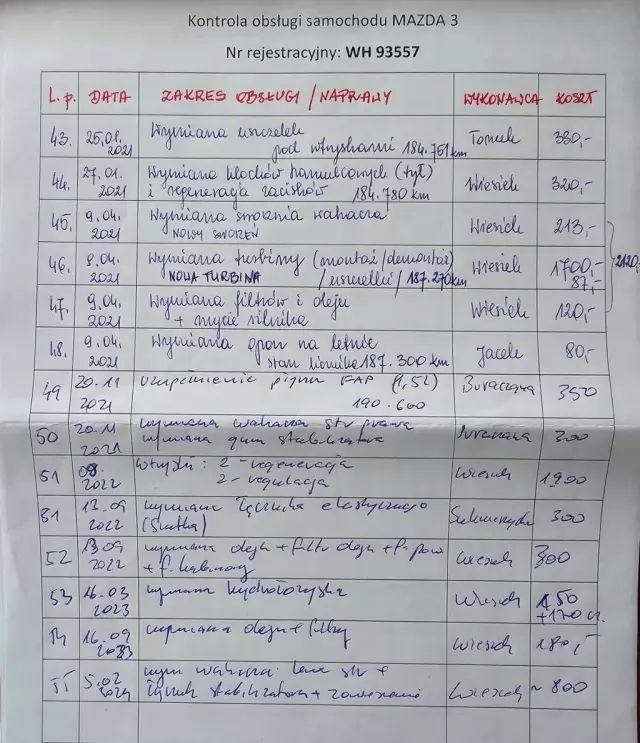 Kontrola obsługi samochodu MAZDA 3
Nr rejestracyjny: WH 93557
L.p. DATA ZAKRES OBSŁUGI / NAPRAWY WYKONAWCA KOSZT
43. 25.01. 2021 Wymiana uszczelek Tomek 330,-
pod wtryskami 184.751 km
44. 27.01. 2021 Wymiana klocków hamulcowych (tył) Wiesiek 320,-
i regeneracja zacisków 184.780 km
45. 9.04. 2021 Wymiana sworznia wahacza Wiesiek 213,-
NOWY SWORZEŃ
46. 8.04. 2021 Wymiana turbiny (montaż/demontaż) Wiesiek 1700,- 2120,-
NOWA TURBINA / uszczelki / 187.270 km 87,-
47. 9.04. 2021 Wymiana filtrów i oleju Wiesiek 120,-
+ mycie silnika
48. 9.04. 2021 Wymiana opon na letnie Jacek 80,-
stan licznika 187.300 km
49 20.11 2021 uzupełnienie płynu FAP (1,5L) 350
190.600
50 20.11 2021 wymiana wahacza str prawa 200
wymiana gum stabilizatora
51 08. 2022 wtryski: 2 - regeneracja Wiesiek 1900
2 - regulacja
51 13.09 2022 wymiana łącznika elastycznego 300
(Siatka)
52 13.09 2022 wymiana oleju + filtr oleju + f. pow Wiesiek 300
+ f. kabinowy
53 16.03 2023 wymiana Wiesiek 150
+170 cz.
16.09 2023 wymiana oleju + filtry Wiesiek 180,-
5.02 2024 wym wahacza lewa str + Wiesiek ~ 800
łącznik stabilizatora +